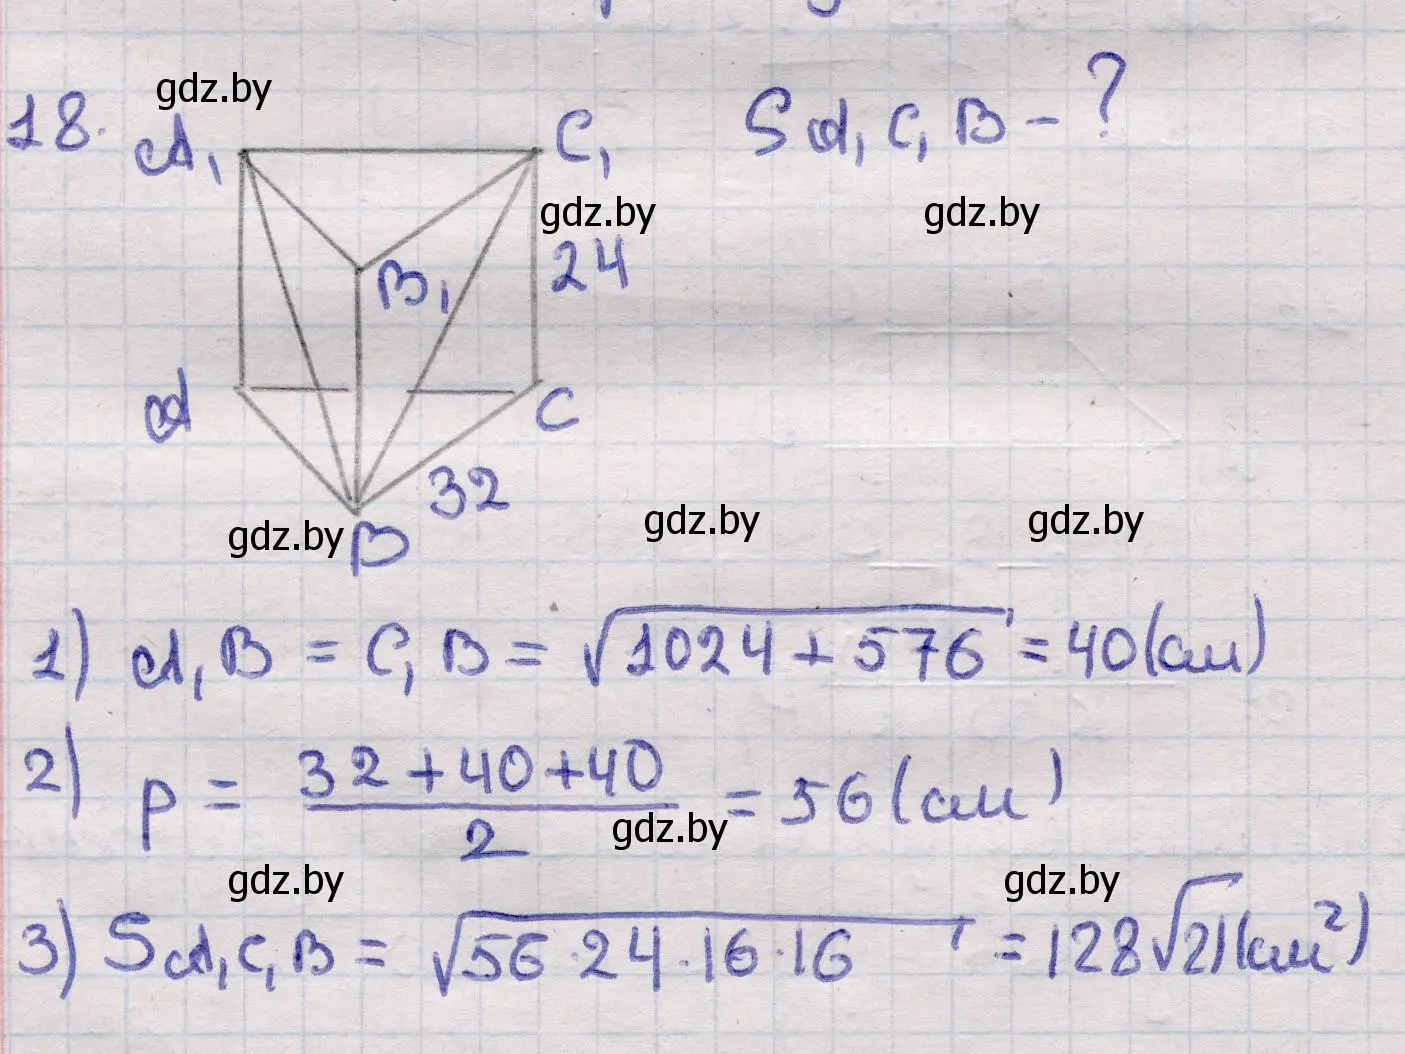 18.
gdz.by
A₁
C₁
S A₁C₁B - ?
gdz.by
gdz.by
B₁
24
A
C
32
gdz.by
B
gdz.by
gdz.by
1) A₁B = C₁B = √1024 + 576 = 40 (см)
2) p = (32 + 40 + 40)/2 = 56 (см)
gdz.by
gdz.by
gdz.by
3) S A₁C₁B = √56 · 24 · 16 · 16 = 128√21 (см²)